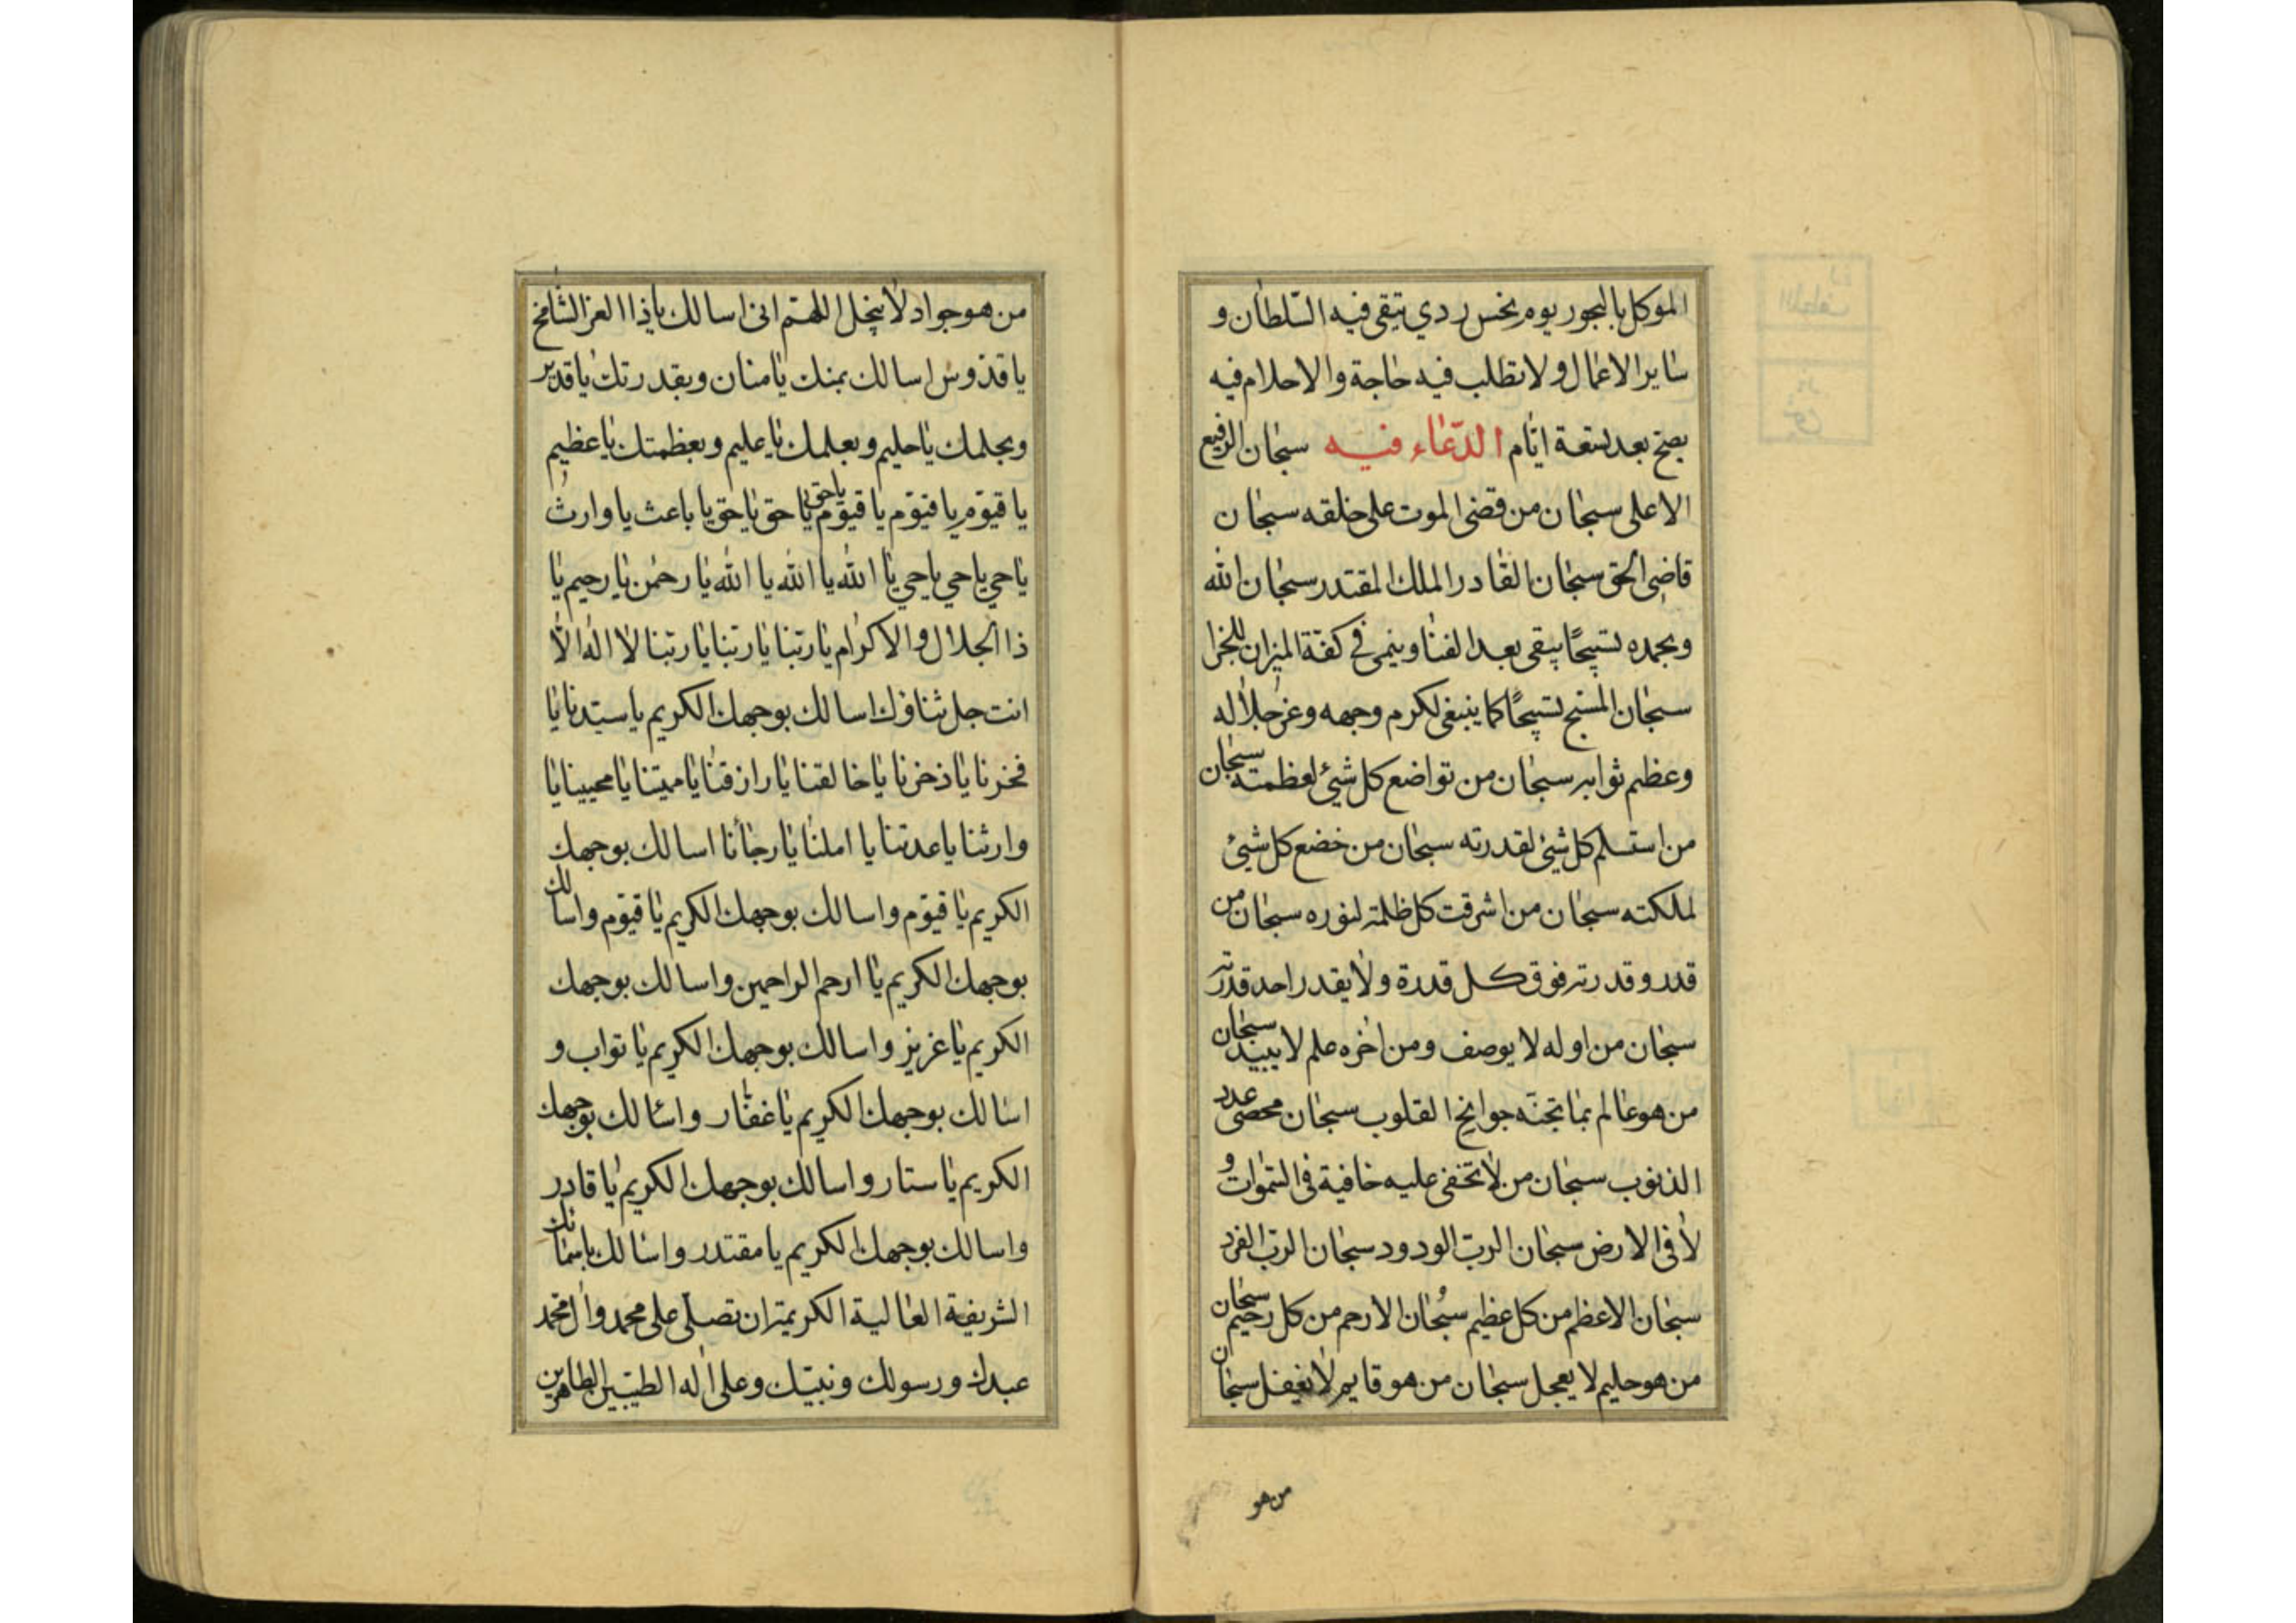 الموكل بالبحور يوم نحس ردي يتقى فيه السّلطان و
ساير الاعمال ولا تطلب فيه حاجة والاحلام فيه
يصح بعد تسعة ايّام الدّعاء فيه سبحان الرفيع
الاعلى سبحان من قضى الموت على خلقه سبحان
قاضى الحق سبحان القادر الملك المقتدر سبحان الله
وبحمده تسبيحًا يبقى بعد الفنا وينمى في كفّة الميزان للجزا
سبحان المسبح تسبيحًا كما ينبغى لكرم وجهه وعز جلاله
وعظيم ثوابه سبحان من تواضع كل شيئ لعظمته سبحان
من استسلم كل شئ لقدرته سبحان من خضع كل شيئ
لملكته سبحان من اشرقت كل ظلمة لنوره سبحان من
قدر وقدرته فوق كل قدرة ولا يقدر احد قدرته
سبحان من اوله لا يوصف ومن اخره علم لا يبيد سبحان
من هو عالم بما تجنّه جوانح القلوب سبحان محصى عدد
الذنوب سبحان من لا تخفى عليه خافية فى السّموات و
لا فى الارض سبحان الربّ الودود سبحان الربّ الفرد
سبحان الاعظم من كل عظيم سبحان الارحم من كل رحيم سبحان
من هو حليم لا يعجل سبحان من هو قايم لا يغفل سبحان
من هو
من هو جواد لا يبخل اللهم انى اسالك ياذا العز الشامخ
يا قدّوس اسالك بمنك يا منان وبقدرتك يا قدير
وبحلمك يا حليم وبعلمك يا عليم وبعظمتك يا عظيم
يا قيّوم يا قيّوم يا قيّوم يا حق يا حق يا حق يا باعث يا وارث
يا حي يا حي يا حي يا الله يا الله يا الله يا رحمن يا رحيم يا
ذا الجلال والاكرام يا ربّنا يا ربّنا يا ربّنا لا اله الّا
انت جل ثناؤك اسالك بوجهك الكريم يا سيّدنا يا
فخرنا يا ذخرنا يا خالقنا يا رازقنا يا مميتنا يا محيينا يا
وارثنا يا عدتنا يا املنا يا رجائنا اسالك بوجهك
الكريم يا قيّوم واسالك بوجهك الكريم يا قيّوم واسالك
بوجهك الكريم يا ارحم الراحمين واسالك بوجهك
الكريم يا عزيز واسالك بوجهك الكريم يا تواب و
اسالك بوجهك الكريم يا غفّار واسالك بوجهك
الكريم يا ستار واسالك بوجهك الكريم يا قادر
واسالك بوجهك الكريم يا مقتدر واسالك باسمائك
الشريفة العالية الكريمة ان تصلّى على محمد وآل محمّد
عبدك ورسولك ونبيّك وعلى آله الطيّبين الطاهرين